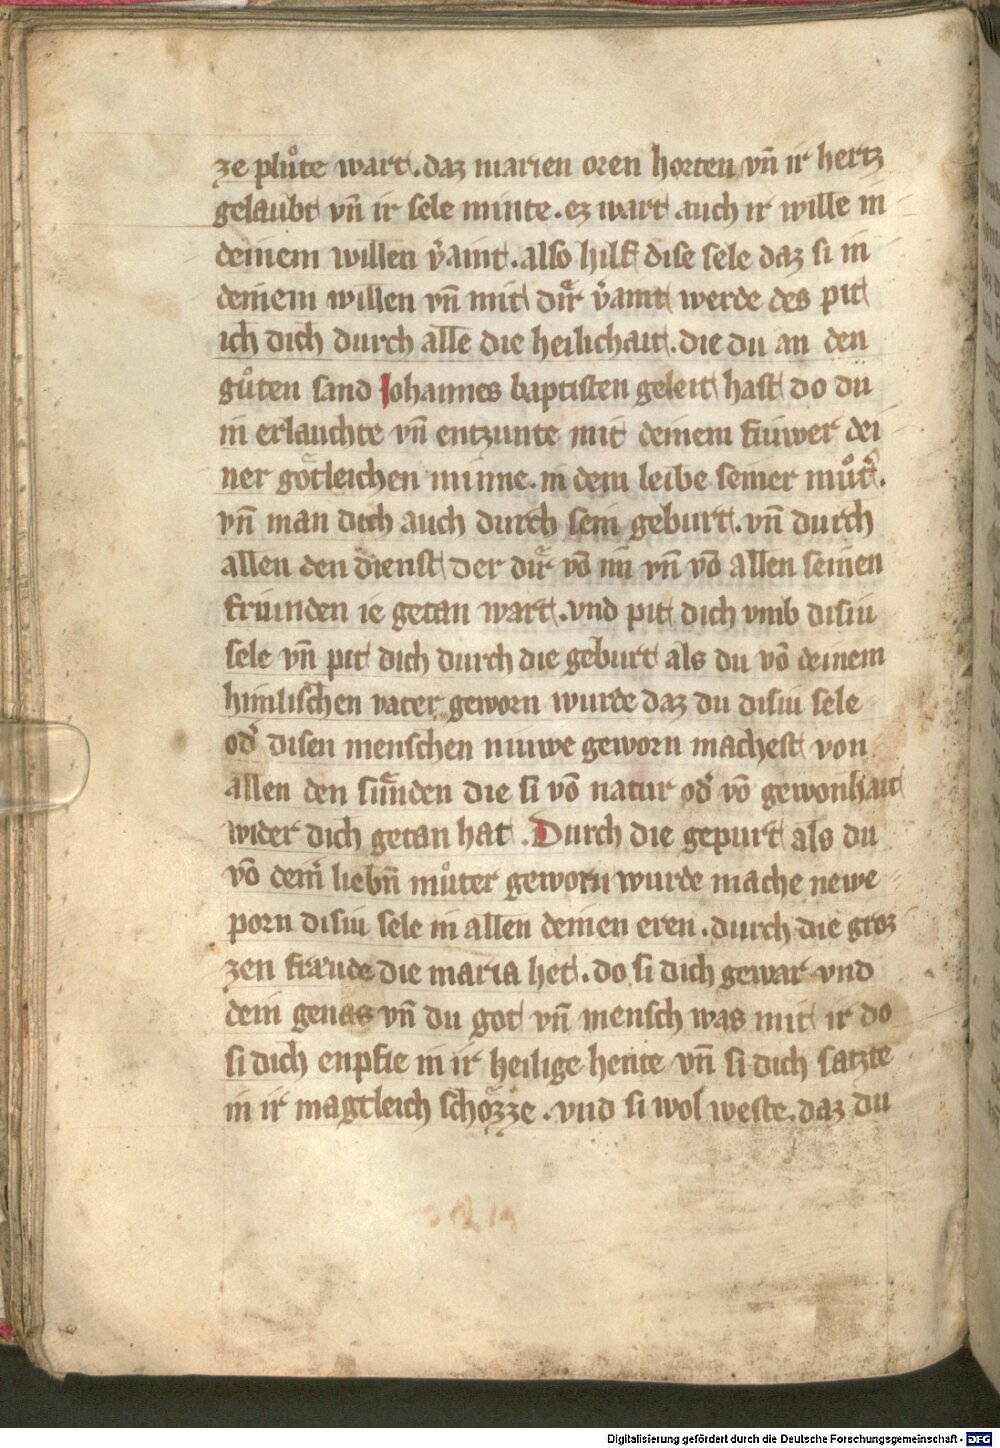 ze plůte wart. daz marien oren horten vn̄ ir hertz
gelaubt vn̄ ir sele minte. ez wart auch ir wille in
deinem willen v̾aint. also hilf dise sele daz si in
deniem willen vn̄ mit dir v̾aint werde des pit
ich dich durch alle die heilichait. die du an den
gůten sand Johannes baptisten geleit hast do du
in erlauchte vn̄ entzunte mit deinem fiuwer dei
ner gotleichen minne. in dem leibe seiner můt̾.
vn̄ man dich auch durch sein geburt. vn̄ durch
allen den dienst der dir vō im vn̄ vō allen seinen
friunden ie getan wart. vnd pit dich vmb disiu
sele vn̄ pit dich durch die geburt als du vō deinem
himlischen vater geworn wurde daz du disiu sele
od̾ disen menschen niuwe geworn machest von
allen den siunden die si vō natur od̾ vō gewonhait
wider dich getan hat. Durch die gepurt als du
vō dein̾ liebn̄ můter geworn wurde mache newe
porn disiu sele in allen deinen eren. durch die groz
zen fraude die maria het. do si dich gewar vnd
dein genas vn̄ du got vn̄ mensch was mit ir do
si dich enpfie in ir heilige hente vn̄ si dich satzte
in ir magtleich schozze. vnd si wol weste. daz du
Digitalisierung gefördert durch die Deutsche Forschungsgemeinschaft - DFG